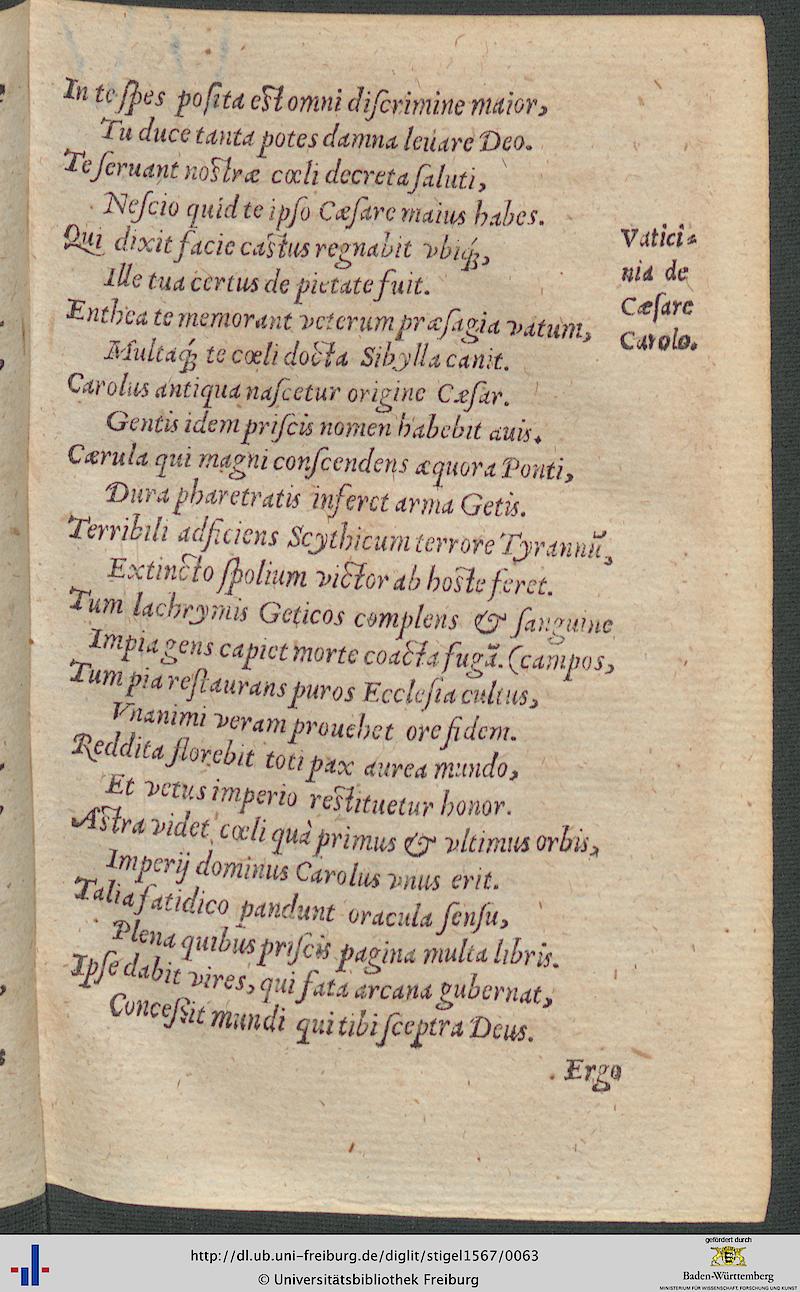 In te ſpes poſita eſt omni diſcrimine maior,
Tu duce tanta potes damna leuare Deo.
Te ſeruant noſtræ cœli decreta ſaluti,
Neſcio quid te ipſo Cæſare maius habes.
Qui dixit facie caſtus regnabit vbiq́;,
Ille tua certus de pietate fuit.
Enthea te memorant veterum præſagia vatum,
Multaq́; te cœli docta Sibylla canit.
Carolus antiqua naſcetur origine Cæſar.
Gentis idem priſcis nomen habebit auis.
Cærula qui magni conſcendens æquora Ponti,
Dura pharetratis inferet arma Getis.
Terribili adficiens Scythicum terrore Tyrannū,
Extincto ſpolium victor ab hoſte feret.
Tum lachrymis Geticos complens & ſanguine
Impia gens capiet morte coacta fugā. (campos,
Tum pia reſtaurans puros Eccleſia cultus,
Vnanimi veram prouehet ore fidem.
Reddita florebit toti pax aurea mundo,
Et vetus imperio reſtituetur honor.
Aſtra videt cœli quà primus & vltimus orbis,
Imperij dominus Carolus vnus erit.
Talia fatidico pandunt oracula ſenſu,
Plena quibus priſcis pagina multa libris.
Ipſe dabit vires, qui fata arcana gubernat,
Conceſsit mundi qui tibi ſceptra Deus.
Ergo
Vatici-
nia de
Cæſare
Carolo.
http://dl.ub.uni-freiburg.de/diglit/stigel1567/0063
© Universitätsbibliothek Freiburg
gefördert durch
Baden-Württemberg
MINISTERIUM FÜR WISSENSCHAFT, FORSCHUNG UND KUNST